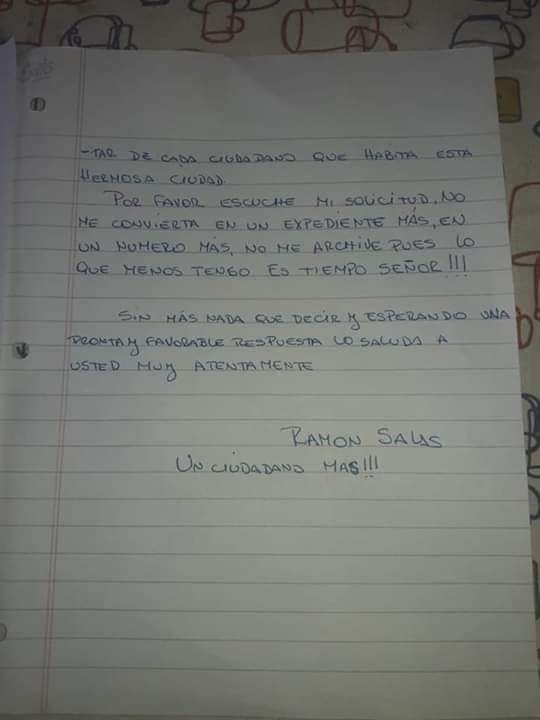 -TAR DE CADA CIUDADANO QUE HABITA ESTA
HERMOSA CIUDAD
POR FAVOR ESCUCHE MI SOLICITUD, NO
ME CONVIERTA EN UN EXPEDIENTE MÁS, EN
UN NUMERO MÁS, NO ME ARCHIVE PUES LO
QUE MENOS TENGO ES TIEMPO SEÑOR!!!
SIN MÁS NADA QUE DECIR Y ESPERANDO UNA
PRONTA Y FAVORABLE RESPUESTA LO SALUDA A
USTED MUY ATENTAMENTE
RAMON SALAS
UN CIUDADANO MAS!!!